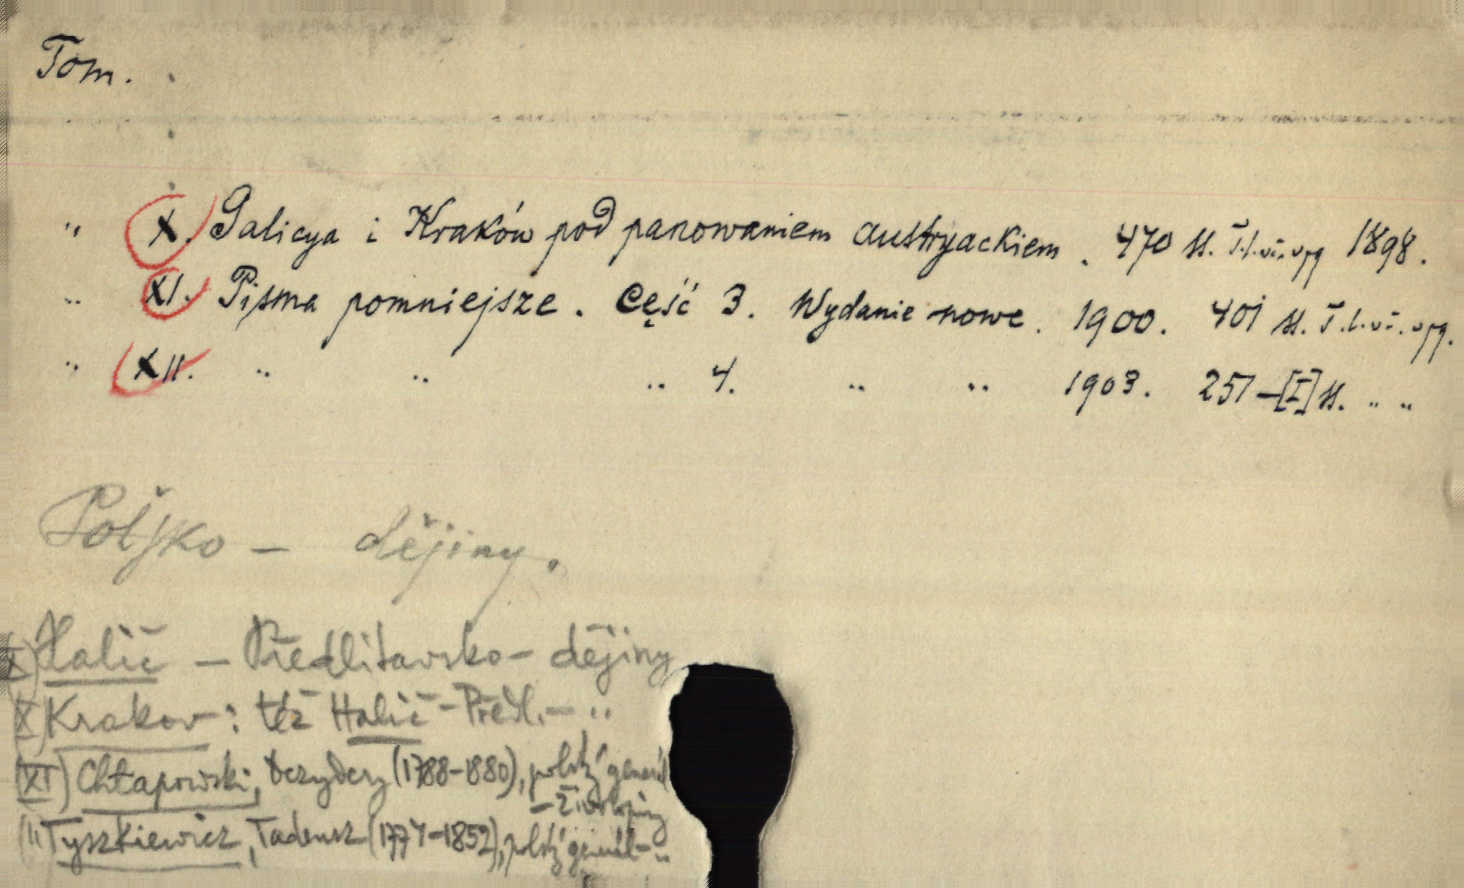 Tom.
" X. Galicya i Kraków pod panowaniem austryackiem. 470 st. T.l.vi.vpg 1898.
" XI. Pisma pomniejsze. Część 3. Wydanie nowe. 1900. 401 st.
" XII. " " " 4. " " 1903. 257-[I] st. " "
Polsko - dějiny.
X) Halič - Předlitavsko - dějiny
X) Krakov: též Halič - Předl. - "
(XI) Chłapowski, Dezydery (1788-1880), polský generál
- Životopisy
(" Tyszkiewicz, Tadeusz (1774-1852), polský generál - "